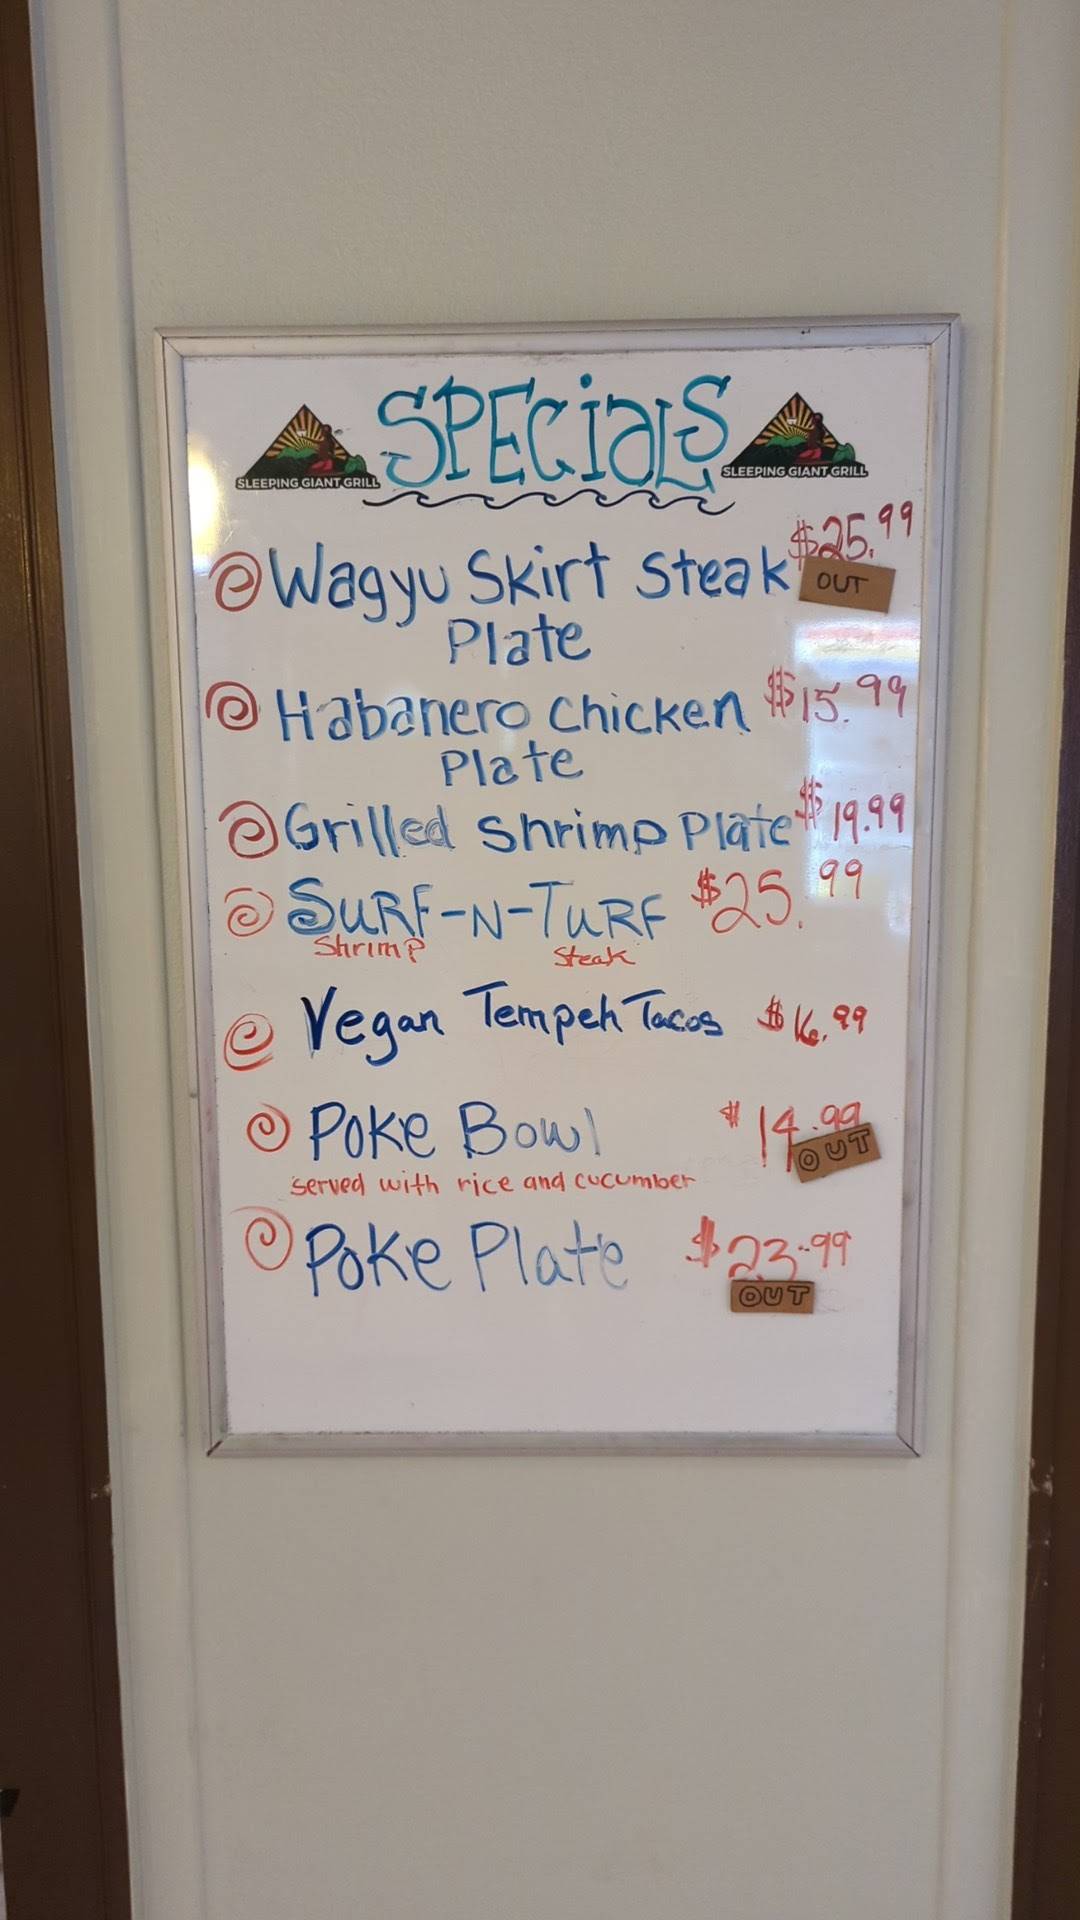 SPECiaLS
SLEEPING GIANT GRILL
SLEEPING GIANT GRILL
Wagyu Skirt Steak $25.99
OUT
Plate
Habanero Chicken $15.99
Plate
Grilled Shrimp Plate $19.99
SURF-N-TURF $25.99
Shrimp Steak
Vegan Tempeh Tacos $16.99
Poke Bowl $14.99
OUT
served with rice and cucumber
Poke Plate $23.99
OUT